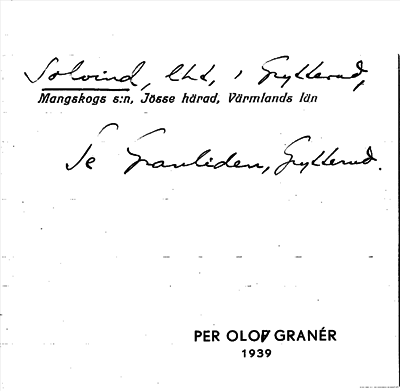 Solvind, lht, i Grytterud,
Mangskogs s:n, Jösse härad, Värmlands län
Se Granliden, Grytterud.
PER OLOF GRANÉR
1939